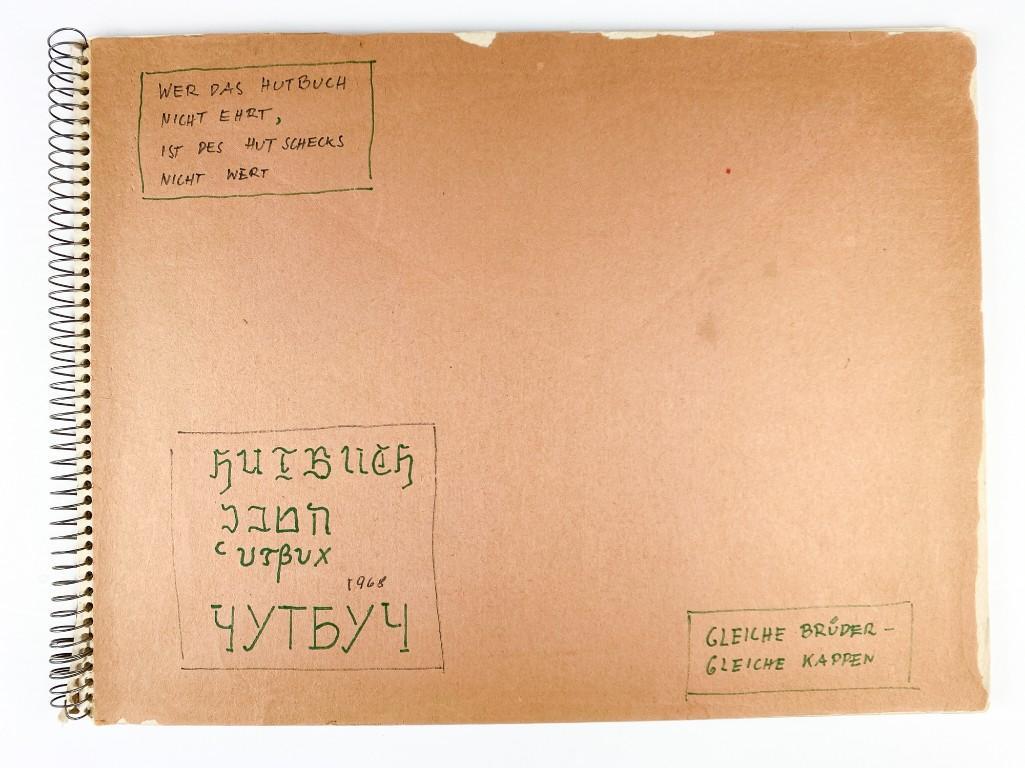 WER DAS HUTBUCH
NICHT EHRT,
IST DES HUTSCHECKS
NICHT WERT
HUTBUCH
חטבכ
ʽυτβυχ
1968
ЧУТБУЧ
GLEICHE BRÜDER –
GLEICHE KAPPEN